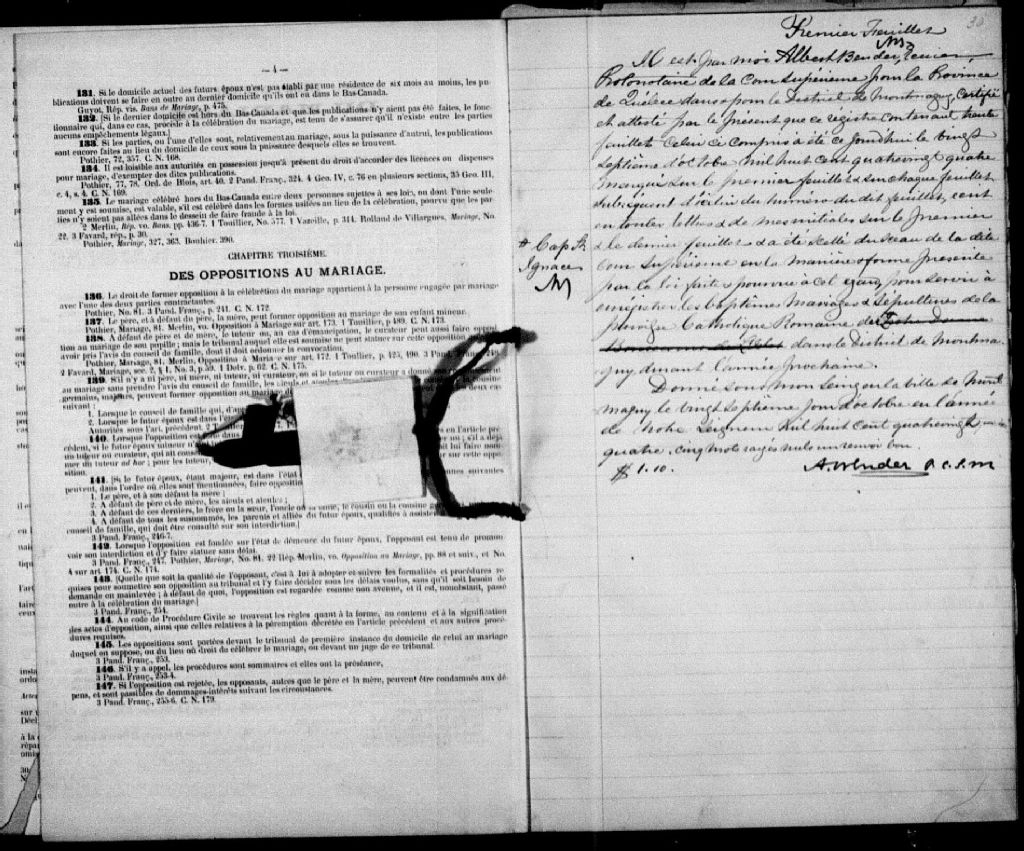 — 4 —
131. Si le domicile actuel des futurs époux n'est pas établi par une résidence de six mois au moins, les pu-
blications doivent se faire en outre au dernier domicile qu'ils ont eu dans le Bas-Canada.
Guyot, Rép. vis. Bans de Mariage, p. 475.
132. [Si le dernier domicile est hors du Bas-Canada et que les publications n'y aient pas été faites, le fonc-
tionnaire qui, dans ce cas, procède à la célébration du mariage, est tenu de s'assurer qu'il n'existe entre les parties
aucuns empêchements légaux.]
133. Si les parties, ou l'une d'elles sont, relativement au mariage, sous la puissance d'autrui, les publications
sont encore faites au lieu du domicile de ceux sous la puissance desquels elles se trouvent.
Pothier, 72, 357. C. N. 168.
134. Il est loisible aux autorités en possession jusqu'à présent du droit d'accorder des licences ou dispenses
pour mariage, d'exempter des dites publications.
Pothier, 77, 78. Ord. de Blois, art. 40. 2 Pand. Franç., 324. 4 Geo. IV, c. 76 en plusieurs sections, 35 Geo. III,
c. 4, s. 4. C. N. 169.
135. Le mariage célébré hors du Bas-Canada entre deux personnes sujettes à ses lois, ou dont l'une seule-
ment y est soumise, est valable, s'il est célébré dans les formes usitées au lieu de la célébration, pourvu que les par-
ties n'y soient pas allées dans le dessein de faire fraude à la loi.
2 Merlin, Rép. vo. Bans, pp. 436-7. 1 Touillier, No. 577. 1 Vazeille, p. 314. Rolland de Villargues, Mariage, No.
22. 3 Favard, rép., p. 30.
Pothier, Mariage, 327, 363. Bouhier. 390.
CHAPITRE TROISIÈME.
DES OPPOSITIONS AU MARIAGE.
136. Le droit de former opposition à la célébration du mariage appartient à la personne engagée par mariage
avec l'une des deux parties contractantes.
Pothier, No. 81. 3 Pand. Franç., p. 241. C. N. 172.
137. Le père, et à défaut du père, la mère, peut former opposition au mariage de son enfant mineur.
Pothier, Mariage, 81. Merlin, vo. Opposition à Mariage sur art. 173. 1 Touillier, p 489. C. N. 173.
138. A défaut de père et de mère, le tuteur ou, au cas d'émancipation, le curateur peut aussi faire opposi-
tion au mariage de son pupille; mais le tribunal auquel elle est soumise ne peut statuer sur cette opposition
avoir pris l'avis du conseil de famille, dont il doit ordonner la convocation.
Pothier, Mariage, 81. Merlin, Opposition à Maria e sur art. 172. 1 Toullier, p 425, 490. 3 Pand.
2 Favard, Mariage, sec. 2, § 1. No. 3, p. 59. 1 Delv. p. 62. C. N. 175.
139. S'il n'y a ni père, ni mère, ni tuteur, ni curateur, ou si le tuteur ou curateur a donné
au mariage sans prendre l'avis du conseil de famille, les aïeuls et
germains, majeurs, peuvent former opposition au mariage
suivant :
1. Lorsque le conseil de famille qui, d'après
2. Lorsque le futur époux est dans l'état
Autorités sous l'art. précédent. 2
140. Lorsque l'opposition est dans
cédent, si le futur époux mineur n'
un tuteur ou curateur, qui ait
mer un tuteur ad hoc; pour les
sition.
141. [Si le futur époux, étant majeur, est dans l'état
peuvent, dans l'ordre où elles sont mentionnées, faire opposition
1. Le père, et à son défaut la mère ;
2. A défaut de père et de mère, les aïeuls et aïeules ;
3. A défaut de ces derniers, le frère ou la sœur, l'oncle ou la tante, le cousin ou la cousine
4. A défaut de tous les susnommés, les parents et alliés du futur époux, qualifiés à assister
conseil de famille, qui doit être consulté sur son interdiction.]
3 Pand. Franç., 246-7.
142. Lorsque l'opposition est fondée sur l'état de démence du futur époux, l'opposant est tenu de promou-
voir son interdiction et d'y faire statuer sans délai.
3 Pand. Franç., 247. Pothier, Mariage, No. 81. 22 Rép. Merlin, vo. Opposition au Mariage, pp. 88 et suiv., et No.
4 sur art. 174. C. N. 174.
143. [Quelque soit la qualité de l'opposant, c'est à lui à adopter et suivre les formalités et procédures re-
quises pour soumettre son opposition au tribunal et l'y faire décider sous les délais voulus, sans qu'il soit besoin de
demande en mainlevée ; à défaut de quoi, l'opposition est regardée comme non avenue, et il est, nonobstant, passé
outre à la célébration du mariage.]
3 Pand. Franç., 254.
144. Au code de Procédure Civile se trouvent les règles quant à la forme, au contenu et à la signification
des actes d'opposition, ainsi que celles relatives à la péremption décrétée en l'article précédent et aux autres procé-
dures requises.
145. Les oppositions sont portées devant le tribunal de première instance du domicile de celui au mariage
duquel on s'oppose, ou du lieu où doit se célébrer le mariage, ou devant un juge de ce tribunal.
3 Pand. Franç., 253.
146. S'il y a appel, les procédures sont sommaires et elles ont la préséance.
3 Pand. Franç., 253-4.
147. Si l'opposition est rejetée, les opposants, autres que le père et la mère, peuvent être condamnés aux dé-
pens, et sont passibles de dommages-intérêts suivant les circonstances.
3 Pand. Franç., 255-6. C. N. 179.
Premier Feuillet
Albert Bender, écuier
Protonotaire de la Cour Supérieure pour la Province
de Québec dans & pour le District de Montmagny, certifié
et attesté par le présent que ce registre contenant trente
feuillets celui ci compris a été ce jourd'hui le vingt
septième d'octobre mil huit cent quatrevingt quatre
marqué sur le premier feuillet & sur chaque feuillet
subséquent d'icelui du numéro du dit feuillet, écrit
en toutes lettres & de mes initiales sur le premier
& le dernier feuillet & a été scellé du sceau de la dite
cour Supérieure en la manière & forme prescrite
par la loi faite & pourvue à cet égard, pour servir à
enrégistrer les baptêmes Mariages & Sépultures de la
paroisse Catholique Romaine de Notre Dame
Bonsecours de l'Islet dans le District de Montma-
gny durant l'année prochaine.
* Cap St
Ignace
Donné sous mon seing en la ville de Mont
magny le vingt septième jour d'octobre en l'année
de notre Seigneur mil huit cent quatrevingt
quatre. cinq mots rayés nuls un renvoi bon.
$1.10.
A. Bender P. C. S. M